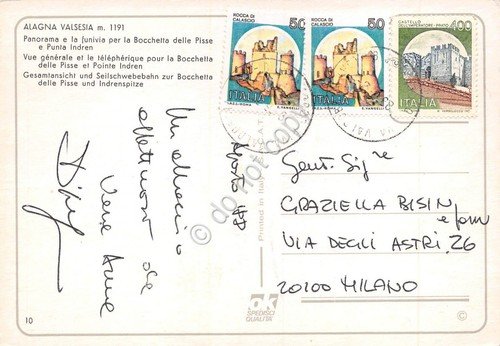 ALAGNA VALSESIA m. 1191
Panorama e la funivia per la Bocchetta delle Pisse
e Punta Indren
Vue générale et le téléphérique pour la Bocchetta
delle Pisse et Pointe Indren
Gesamtansicht und Seilschwebebahn zur Bocchetta
delle Pisse und Indrenspitze
50
ROCCA DI
CALASCIO
ITALIA
50
ROCCA DI
CALASCIO
ITALIA
400
CASTELLO
DELL'IMPERATORE - PRATO
ITALIA
Agosto
Un abbraccio
affettuoso da
Vera Anna
do not copy
Printed in Italy
Gent. Sig.re
GRAZIELLA BISIN
e fam
VIA DEGLI ASTRI, 26
20100 MILANO
10
ok
SPEDISCI
QUALITA'
©